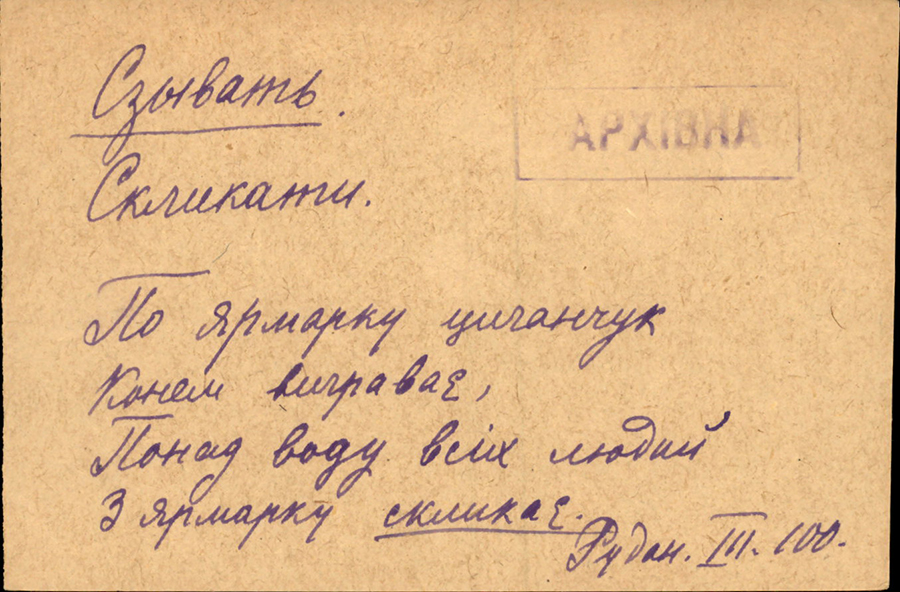 Сзывать.
АРХІВНА
Скликати.
По ярмарку циганчук
Конем виграває,
Понад воду всіх людий
З ярмарку скликає.
Рудан. III. 100.